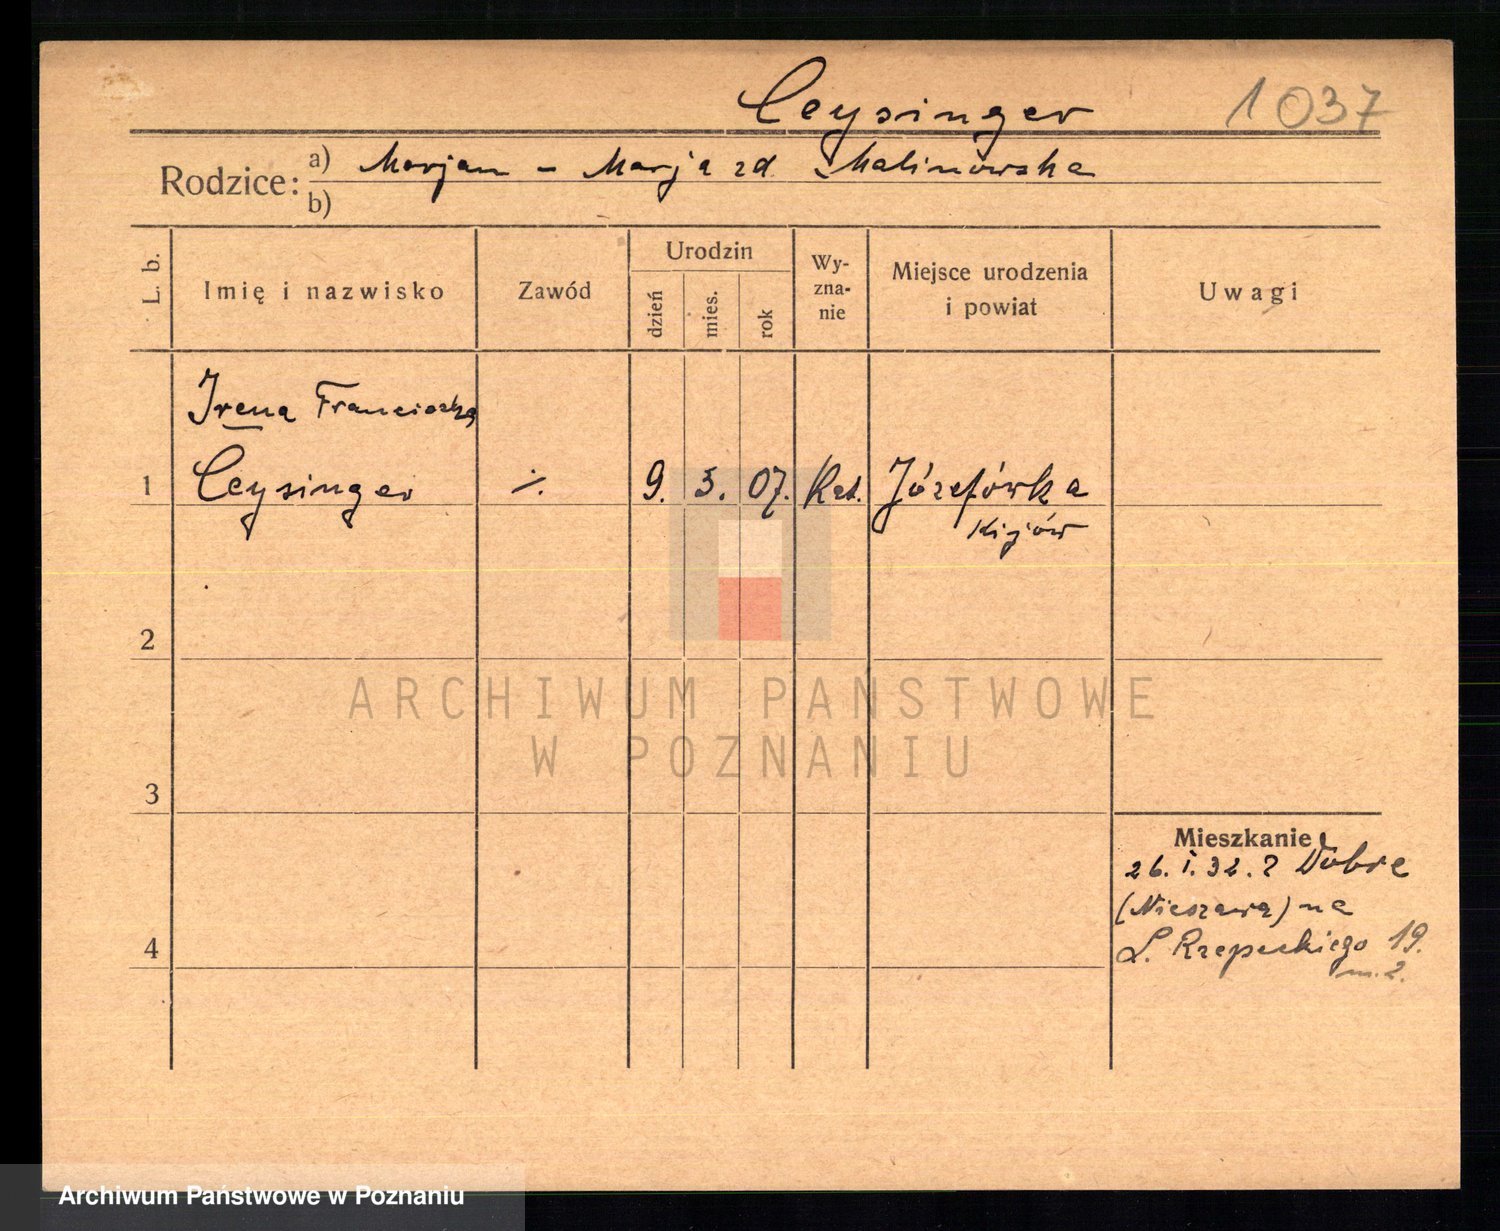 Ceysinger 1037
Rodzice: a) Marjan - Marja zd. Malinowska
b)
L. b. Imię i nazwisko Zawód Urodzin dzień mies. rok Wy-zna-nie Miejsce urodzenia i powiat Uwagi
Irena Franciszka
1 Ceysinger ./. 9. 3. 07. Kat. Józefówka
Kijów
2
ARCHIWUM PAŃSTWOWE
W POZNANIU
3
Mieszkanie
26. I. 32. z Dobre
(Nieszawa) na
4 L. Rzepeckiego 19.
m. 2.
Archiwum Państwowe w Poznaniu